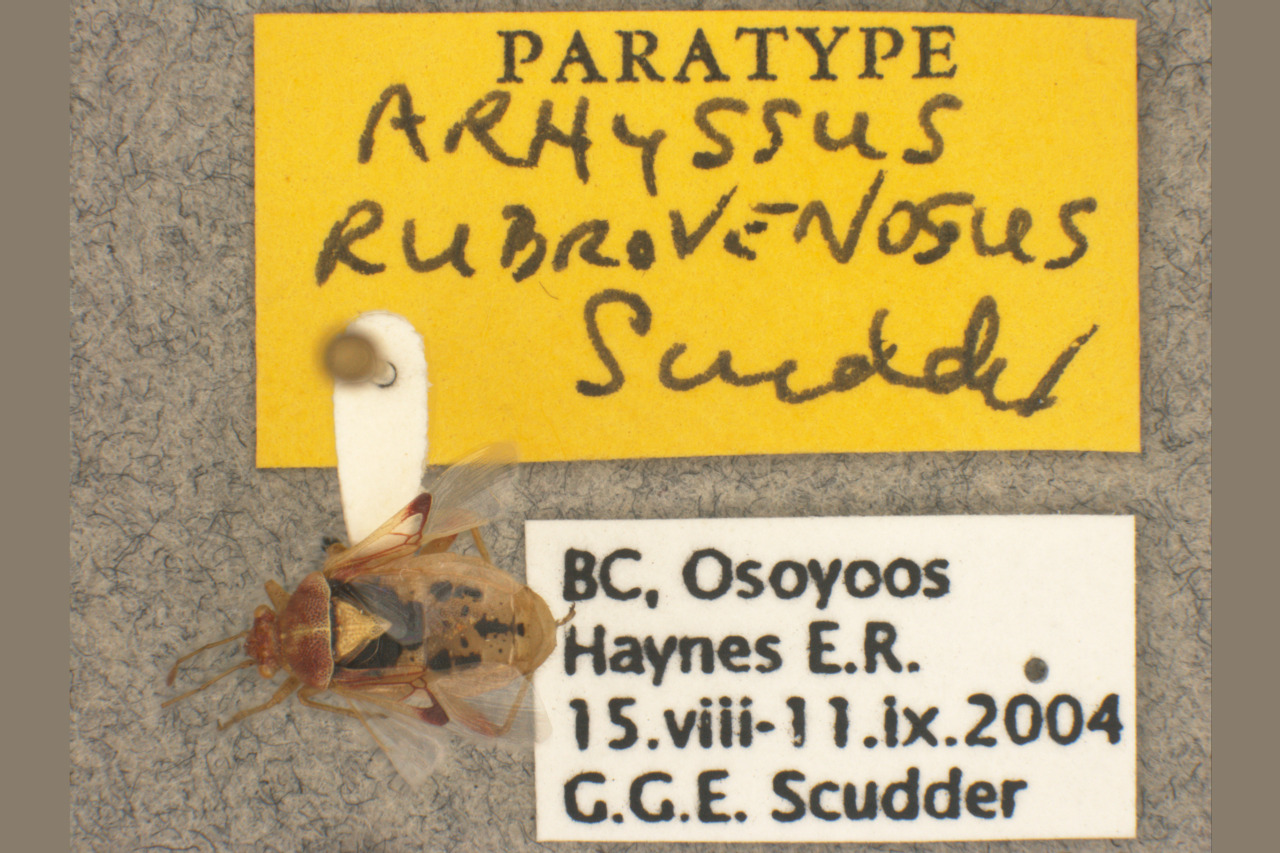 PARATYPE
ARHYSSUS
RUBROVENOSUS
Scudder
BC, Osoyoos
Haynes E.R.
15.viii-11.ix.2004
G.G.E. Scudder